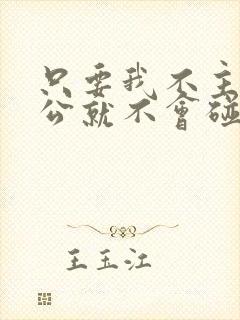 只要我不主
公就不會碰
王玉江